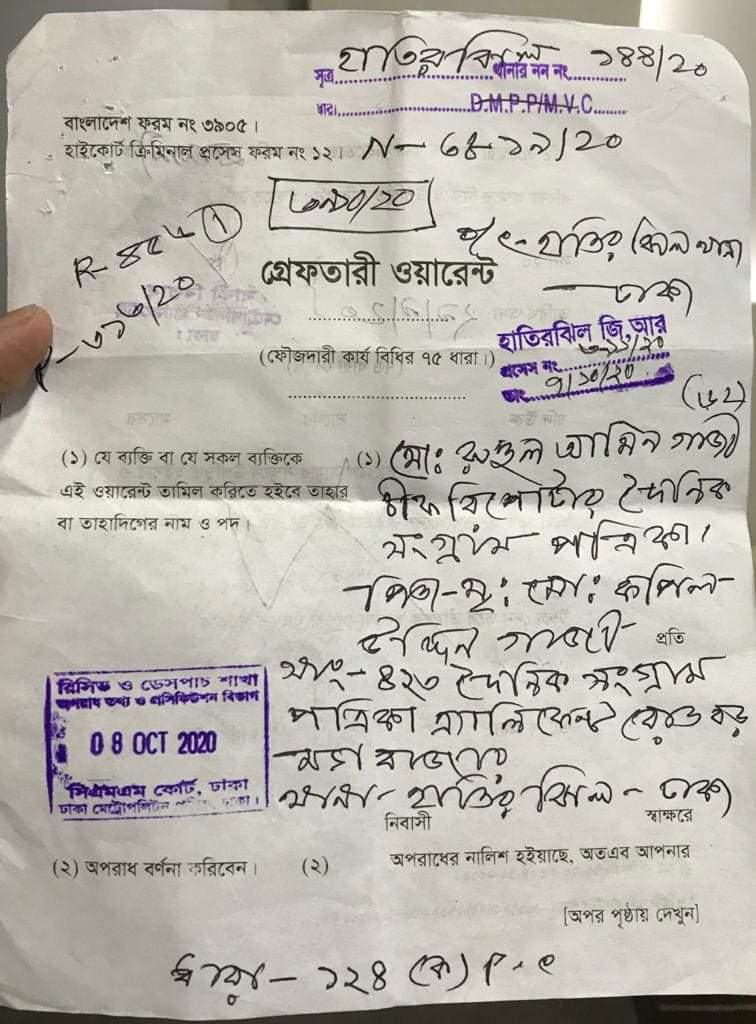 সূত্র হাতিরঝিল থানার নন নং ১৪৪/২০
ধারা D.M.P.P/M.V.C
বাংলাদেশ ফরম নং ৩৯০৫।
হাইকোর্ট ক্রিমিনাল প্রসেস ফরম নং ১২।
হাতির ঝিল থানা
ঢাকা
গ্রেফতারী ওয়ারেন্ট
(ফৌজদারী কার্য বিধির ৭৫ ধারা।)
হাতিরঝিল জি,আর
প্রসেস নং
তাং ৭/১০/২০
(১) যে ব্যক্তি বা যে সকল ব্যক্তিকে
এই ওয়ারেন্ট তামিল করিতে হইবে তাহার
বা তাহাদিগের নাম ও পদ।
(১) মো: রুহুল আমিন গাজী
চীফ রিপোর্টার দৈনিক
সংগ্রাম পত্রিকা।
পিতা-মৃ: মো: কফিল
উদ্দিন গাজী প্রতি
সাং- ৪২৩ দৈনিক সংগ্রাম
পত্রিকা এ্যালিফেন্ট রোড বড়
মগবাজার
থানা- হাতির ঝিল - ঢাকা
নিবাসী স্বাক্ষরে
রিসিভ ও ডেসপাচ শাখা
অপরাধ তথ্য ও প্রসিকিউশন বিভাগ
08 OCT 2020
সিএমএম কোর্ট, ঢাকা
ঢাকা মেট্রোপলিটন ঢাকা।
(২) অপরাধ বর্ণনা করিবেন।
(২) অপরাধের নালিশ হইয়াছে, অতএব আপনার
[অপর পৃষ্ঠায় দেখুন]
ধারা - ১২৪ (ক)